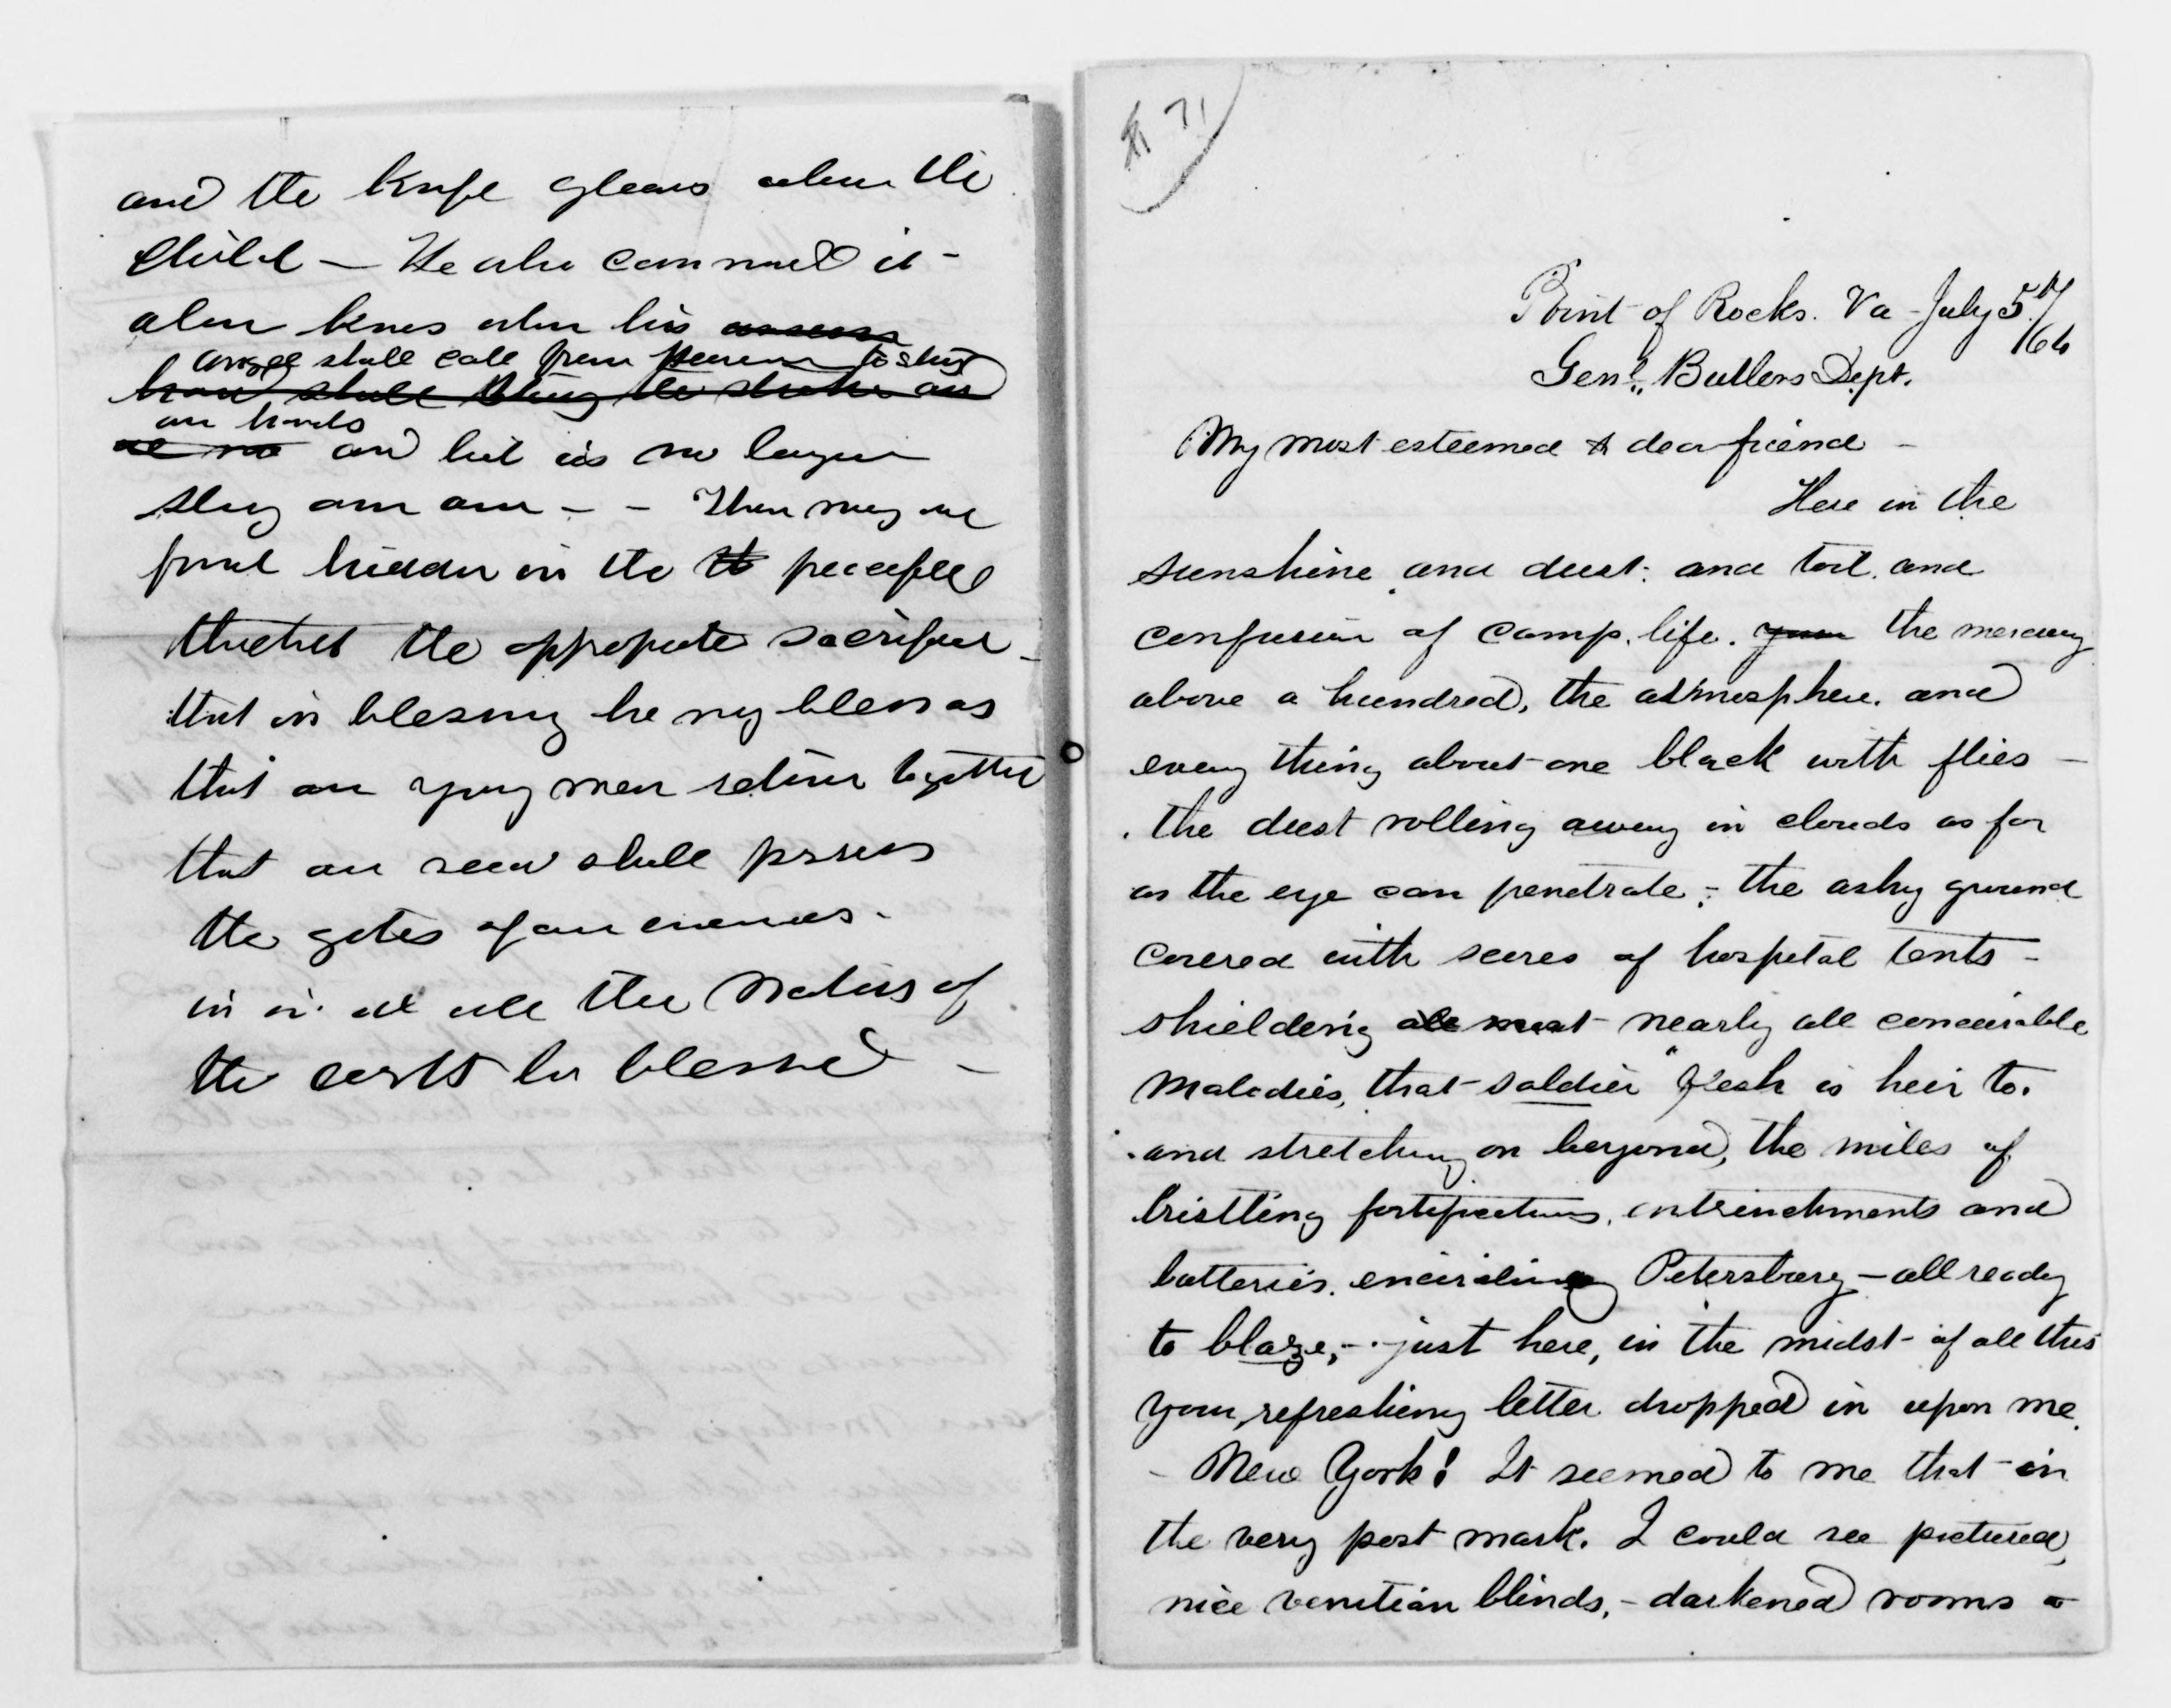 and the knife gleams above the
child — He who command it —
alone knows when his
angel shall call from heaven to stay
our hands
and bid us no longer
slay our own — — Then may we
find hidden in the peaceful
thicket the appropriate sacrifice —
that in blessing he may bless us
that our young men return together
that our seed shall possess
the gates of our enemies.
in all the Nations of
the earth be blessed —
# 71
Point of Rocks. Va - July 5th/64
Genl. Butlers Dept.
My most esteemed & dear friend —
Here in the
sunshine and dust, and toil and
confusion of camp life. the mercury
above a hundred, the atmosphere and
every thing about one black with flies —
the dust rolling away in clouds as far
as the eye can penetrate; the ashy ground
covered with scores of hospital tents —
shielding nearly all conceivable
maladies, that soldier "flesh is heir to.
and stretching on beyond, the miles of
bristling fortifications, entrenchments and
batteries, encircling Petersburg — all ready
to blaze, — just here, in the midst of all this
your refreshing letter dropped in upon me.
— New York! It seemed to me that in
the very post mark, I could see pictured,
nice venitian blinds, — darkened rooms